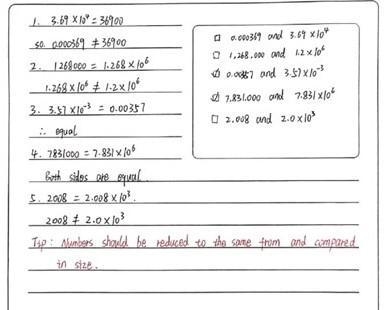 1. 3.69 × 10⁴ = 36900
so. 0.000369 ≠ 36900
2. 1268000 = 1.268 × 10⁶
1.268 × 10⁶ ≠ 1.2 × 10⁶
3. 3.57 × 10⁻³ = 0.00357
∴ equal
4. 7831000 = 7.831 × 10⁶
Both sides are equal.
5. 2008 = 2.008 × 10³.
2008 ≠ 2.0 × 10³
Tip: Numbers should be reduced to the same from and compared
in size.
☐ 0.000369 and 3.69 × 10⁴
☐ 1,268.000 and 1.2 × 10⁶
☑ 0.00357 and 3.57 × 10⁻³
☑ 7.831.000 and 7.831 × 10⁶
☐ 2.008 and 2.0 × 10³